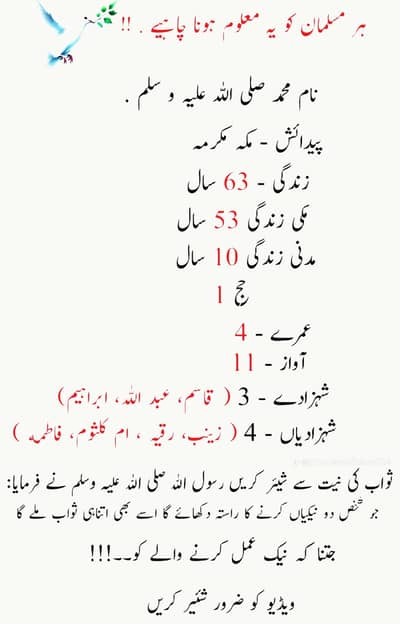 ہر مسلمان کو یہ معلوم ہونا چاہیے . !!
نام محمد صلی اللہ علیہ و سلم .
پیدائش - مکہ مکرمہ
زندگی - 63 سال
مکی زندگی 53 سال
مدنی زندگی 10 سال
حج 1
عمرے - 4
آواز - 11
شہزادے - 3 ( قاسم، عبد اللہ، ابراہیم)
شہزادیاں - 4 ( زینب، رقیہ ، ام کلثوم، فاطمہ )
ثواب کی نیت سے شیئر کریں رسول اللہ صلی اللہ علیہ وسلم نے فرمایا:
جو شخص دو نیکیاں کرنے کا راستہ دکھائے گا اسے بھی اتناہی ثواب ملے گا
جتنا کہ نیک عمل کرنے والے کو۔۔!!!
ویڈیو کو ضرور شئیر کریں